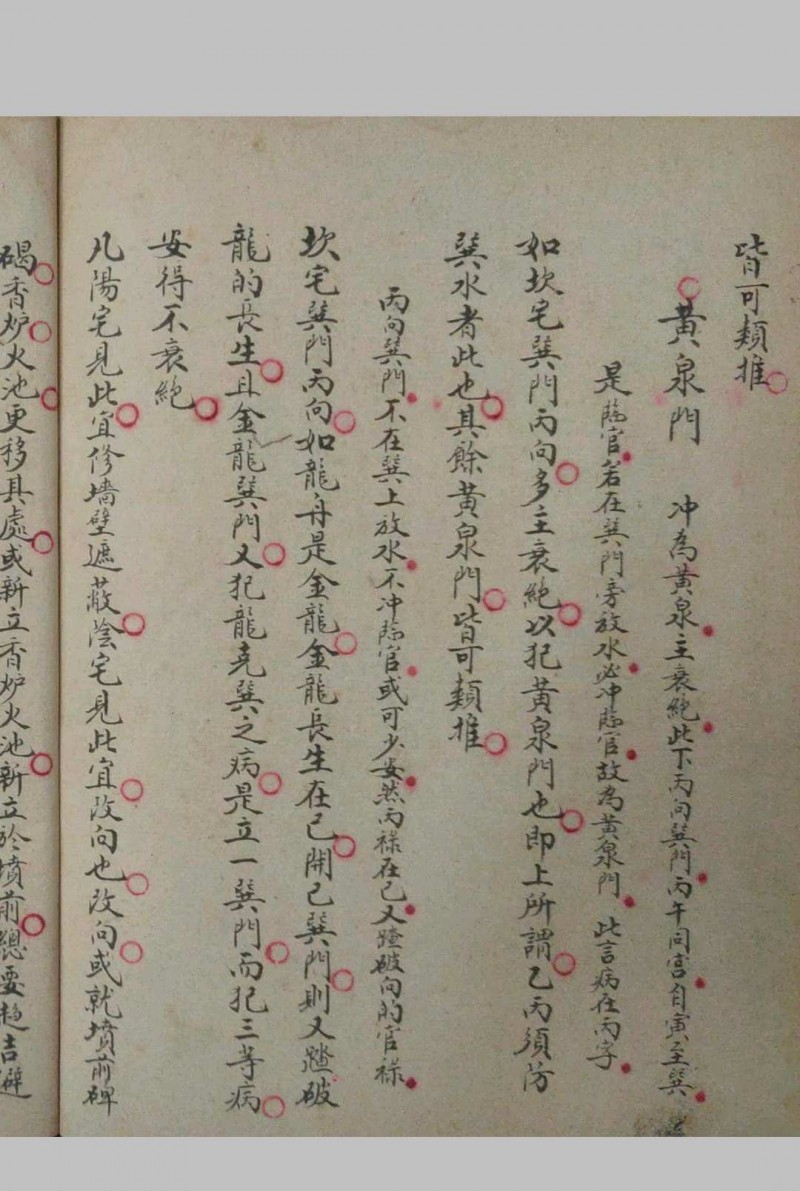 皆可類推
黃泉門　冲為黃泉主衰絕此下丙向巽門丙午同宮自寅至巽
是臨官若在巽門旁放水必冲臨官故為黃泉門　此言病在丙字
如坎宅巽門丙向多主衰絕以犯黃泉門也即上所謂乙丙須防
巽水者此也其餘黃泉門皆可類推
丙向巽門不在巽上放水不冲臨官或可少安然丙祿在巳又蹅破向的官祿
坎宅巽門丙向如龍舟是金龍金龍長生在巳開巳巽門則又蹅破
龍的長生且金龍巽門又犯龍克巽之病是立一巽門而犯三等病
安得不衰絕
凡陽宅見此宜修墻壁遮蔽蔭宅見此宜改向也改向或就墳前碑
碣香炉火池更移具處或新立香炉火池新立於墳前總要趋吉避